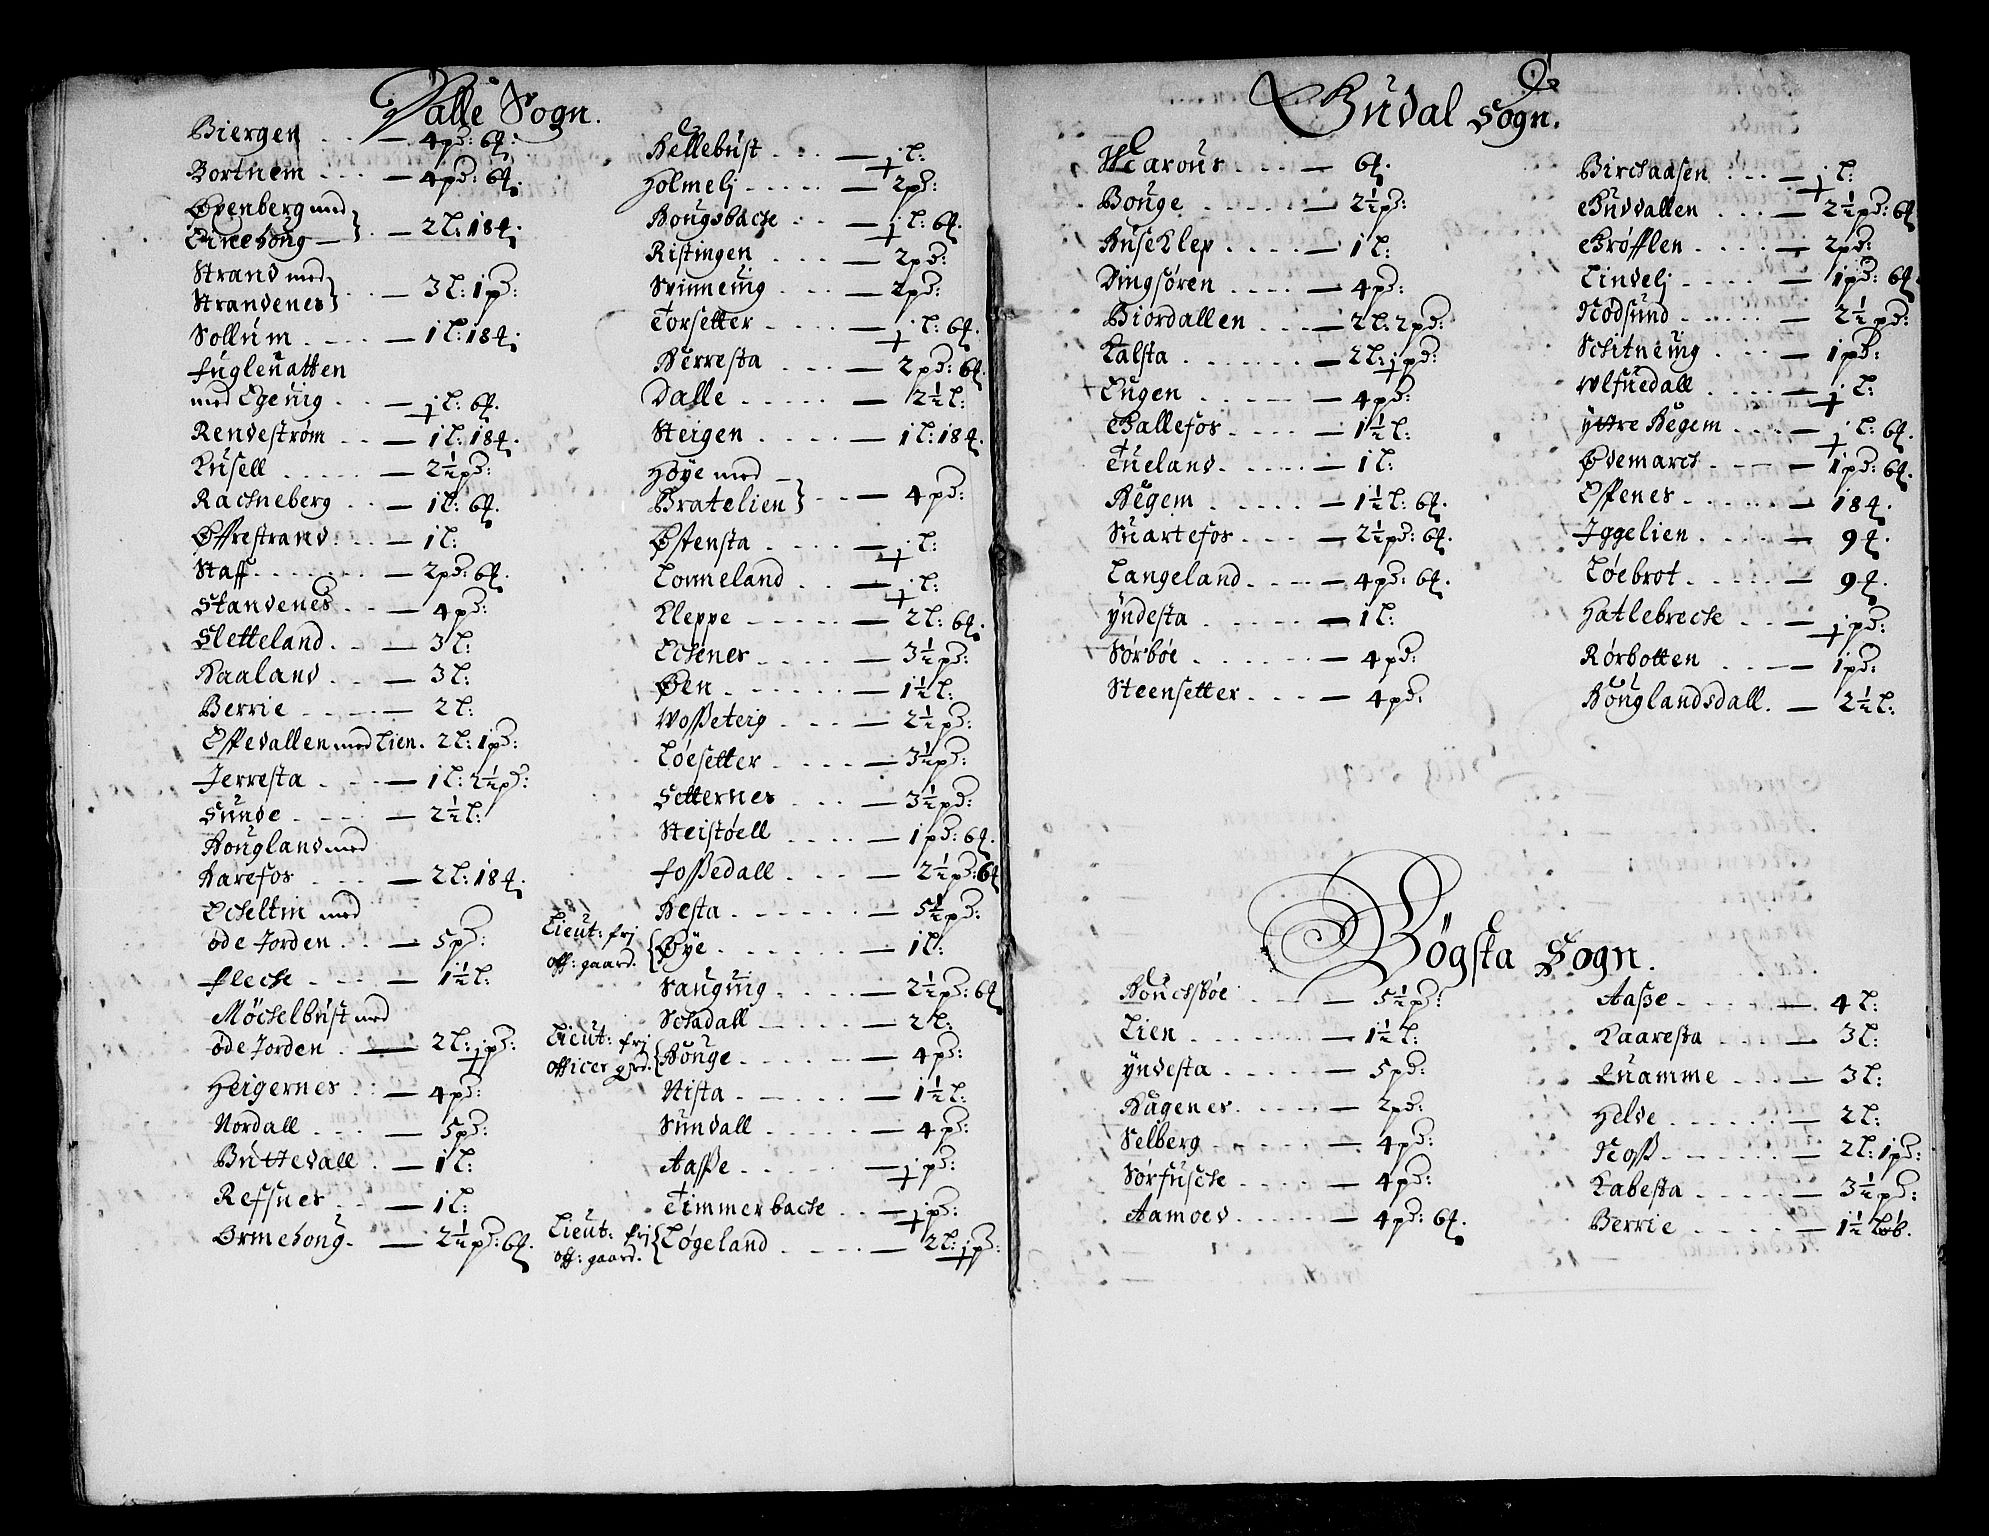 Dalle Sogn.
Biergen . . . — 4pd: 6ȹ.
Bortnem . . . — 4pd: 6ȹ.
Øpenberg med
Circhoug — } . — 2 l: 18ȹ.
Strand med
Strandenes } . . — 3 l: 1pd:
Sollum . . . . — 1 l: 18ȹ.
Fugleuatten
med Egeuig . . — ½ l: 6ȹ.
Rendestrøm . . — 1 l: 18ȹ.
Kusell . . . . — 2½pd:
Rachneberg . . — 1 l: 6ȹ.
Øffrestrand . . — 1 l:
Staff . . . . . — 2pd: 6ȹ.
Standenes . . — 4pd:
Sletteland . . — 3 l:
Haaland . . — 3 l:
Berrie . . . — 2 l:
Offedallen med Lien. 2 l: 1pd:
Jerresta . . . — 1 l: 2½pd:
Sunde . . . — 2½ l:
Hougland med
Harefos . . . — 2 l: 18ȹ.
Echeltin med
øde Jorden . . — 5pd:
Fleche . . . — 1½ l:
Møchelbust med
øde Jorden . — 2 l: ½pd:
Heigernes . . — 4pd:
Nordall . . . — 5pd:
Buttedall . — 1 l:
Refsnes . . — 1 l:
Ormehoug . — 2½pd: 6ȹ.
Hellebust . . . — ½ l:
Holmelj . . . . . — 2pd:
Hougsbache . . — ½ l: 6ȹ.
Ristingen . . . — 2pd:
Suinneuig . . . — 2pd:
Torsetter . . . . — ½ l: 6ȹ.
Herresta . . . — 2pd: 6ȹ.
Dalle . . . . . — 2½ l:
Steigen . . . . — 1 l: 18ȹ.
Høye med —
Bratelien } . . . — 4pd:
Østensta . . . . — ½ l:
Lonneland . . . — ½ l:
Kleppe . . . . . — 2 l: 6ȹ.
Echenes . . . . — 3½pd:
Øen . . . . . . — 1½ l:
Wosseteig . . . . — 2½pd:
Løesetter . . . . — 3½pd:
Setternes . . . — 3½pd:
Steistøell . . . . — 1pd: 6ȹ.
Fossedall . . . . — 2½pd: 6ȹ
Hesta . . . . . . — 5½pd:
Lieut: frj
off: gaard. { Øye . . . . . . — 1 l:
Sauguig . . . . — 2½pd: 6ȹ
Schadall . . . . — 2 l:
Lieut: frj
officer grd. { Houge . . . . . — 4pd:
Nista . . . . . — 1½ l:
Sundall . . . . . — 4pd:
Aasse . . . . . — ½pd:
Timmerbache . . — ½pd:
Lieut: frj
off: gaard. { Løgeland . . . . — 2 l: ½pd:
Gudal Sogn.
Waarous . . . — 6ȹ.
Bouge . . . . . — 2½pd:
Huseklep . . . . — 1 l:
Dingsøren . . . . — 4pd:
Biordallen . . . — 2 l: 2pd:
Kalsta . . . . . . — 2 l: ½pd:
Eugen . . . . . — 4pd:
Hallefos . . . . — 1½ l:
Tueland . . . . . — 1 l:
Hegem . . . . . — 1½ l: 6ȹ.
Suartefos . . . . — 2½pd: 6ȹ.
Langeland . . . — 4pd: 6ȹ.
Yndesta . . . . . — 1 l:
Sørbøe . . . . . . — 4pd:
Steensetter . . . . — 4pd:
Birchaasen . . . — ½ l:
Guddallen . . . — 2½pd: 6ȹ
Grøfflen . . . . — 2pd:
Lindelj . . . . . — 1pd: 6ȹ
Nødsund . . . . . — 2½pd:
Schitneuig . . . — 1pd:
Wlfuedall . . . — ½ l:
yttre Hegem . . . — ½ l: 6ȹ.
Ødemarch . . . — 1pd: 6ȹ.
Espenes . . . . . — 18ȹ.
Iggelien . . . . — 9ȹ.
Løebrot . . . . — 9ȹ.
Hatlebreche . . — ½pd:
Rørbotten . . . — 1pd:
Houglandsdall. — 2½ l:
Bøgsta Sogn.
Houchsbøe . . . — 5½pd:
Lien . . . . . . — 1½ l:
Yndesta . . . . . — 5pd:
Hagenes . . . . . — 2pd:
Selberg . . . . . — 4pd:
Sørfusche . . . . — 4pd:
Aamoed . . . . . — 4pd: 6ȹ.
Aasse . . . . . . — 4 l:
Kaaresta . . . . — 3 l:
Quamme . . . — 3 l:
Helde . . . . . . — 2 l:
Noss . . . . . . — 2 l: 1pd:
Kabesta . . . . . — 3½pd:
Berrie . . . . . — 1½ Løb.